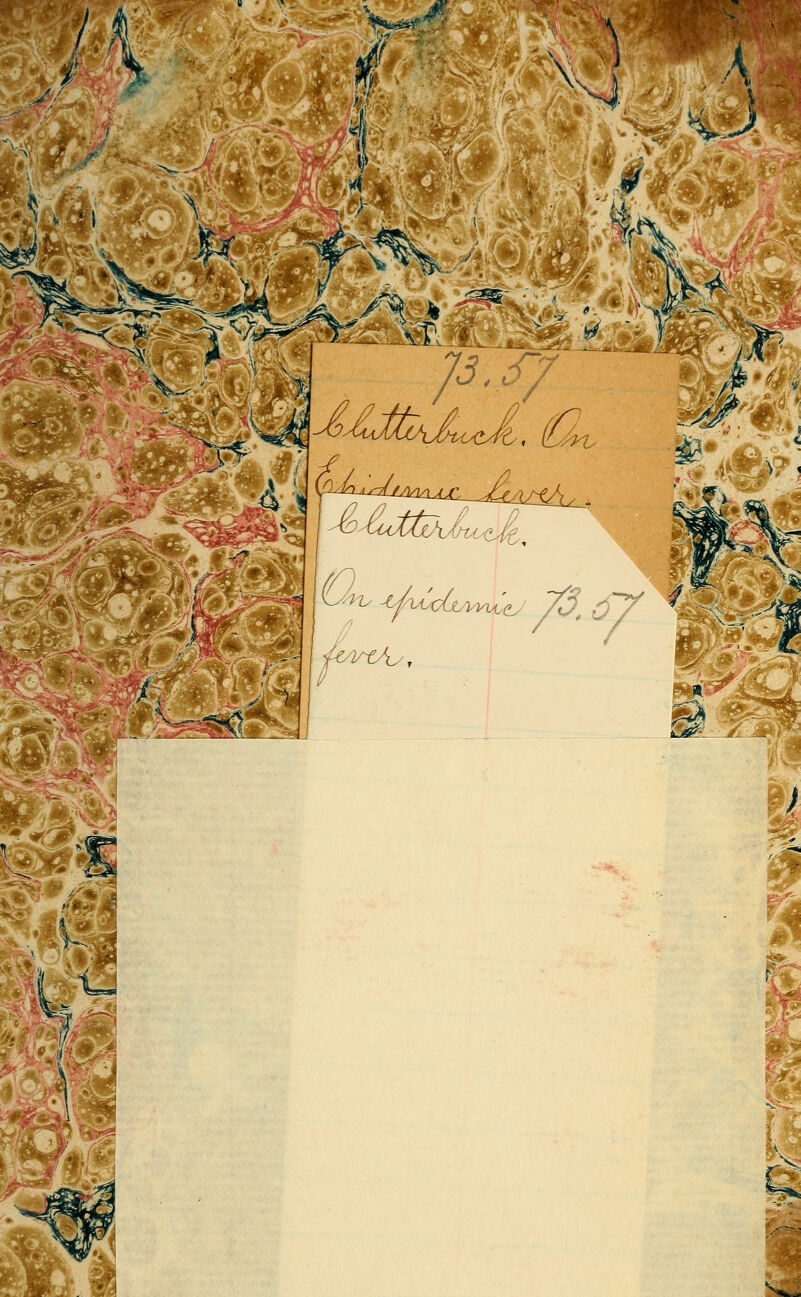 73.57
Clutterbuck. On
Epidemic fever.
Clutterbuck.
On epidemic 73.57
fever.